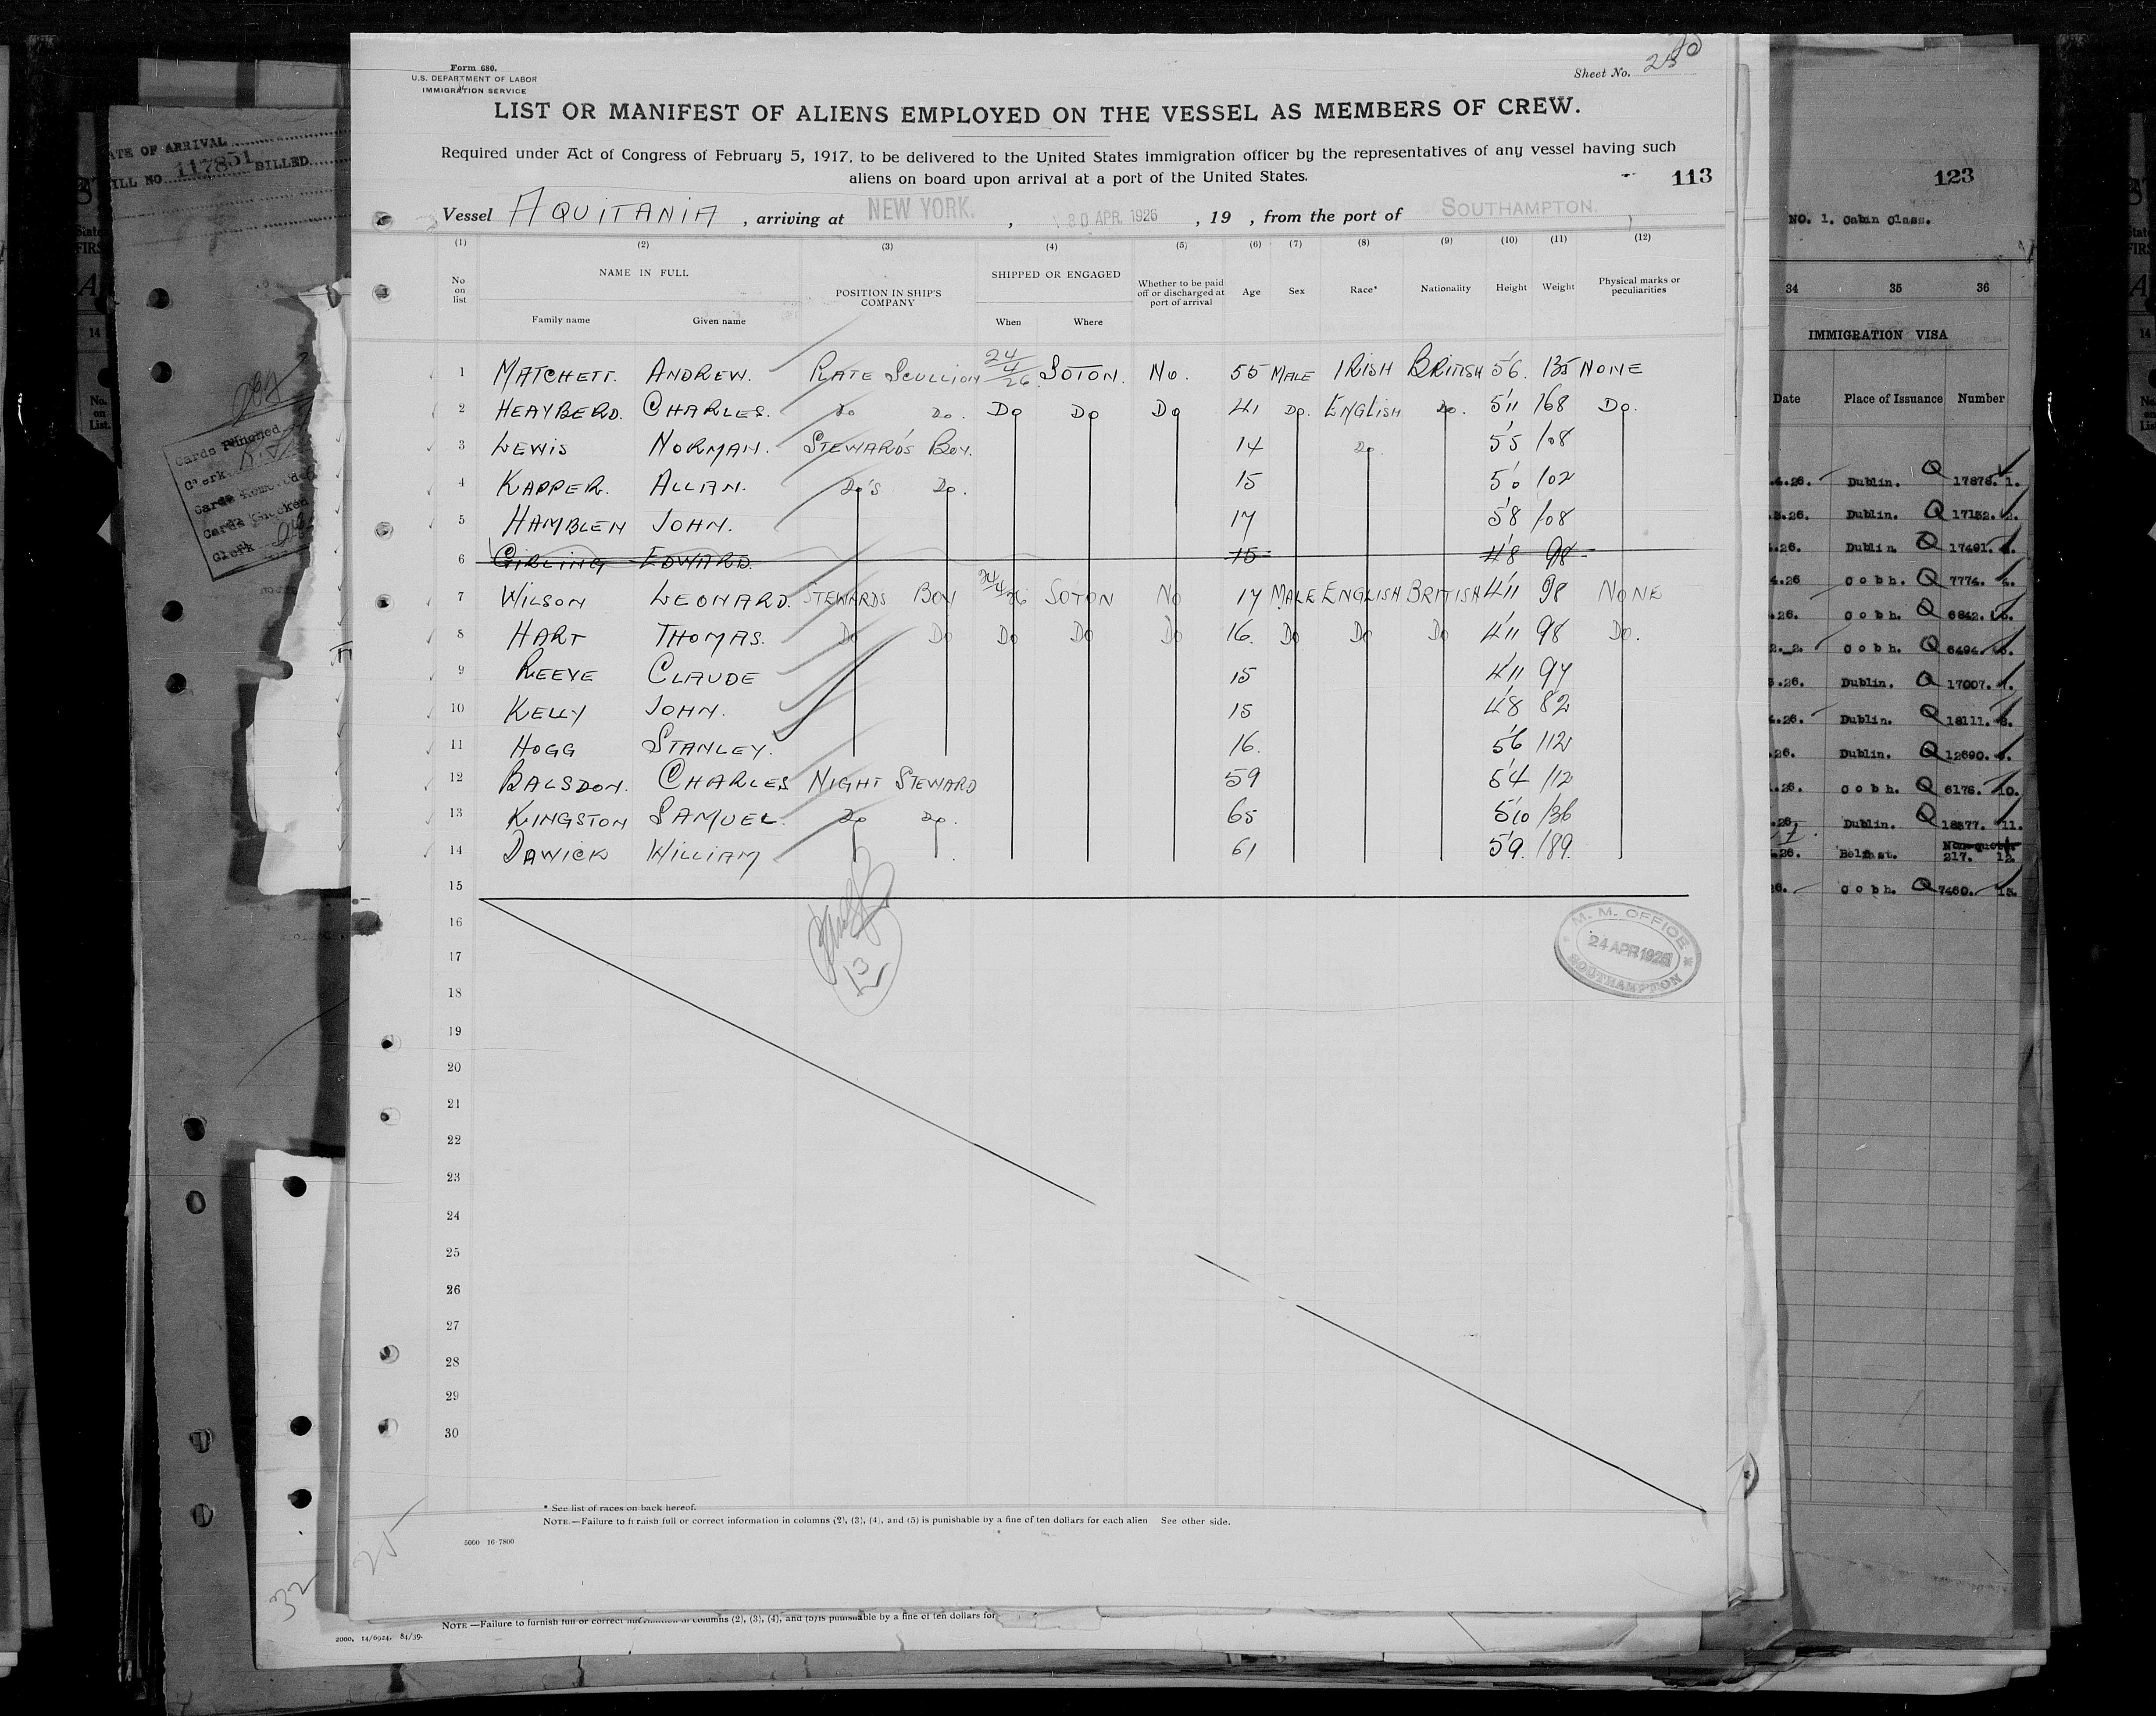 Form 680.
U.S. DEPARTMENT OF LABOR
IMMIGRATION SERVICE
Sheet No.
LIST OR MANIFEST OF ALIENS EMPLOYED ON THE VESSEL AS MEMBERS OF CREW.
Required under Act of Congress of February 5, 1917, to be delivered to the United States immigration officer by the representatives of any vessel having such
aliens on board upon arrival at a port of the United States.
113
Vessel AQUITANIA, arriving at NEW YORK. , 30 APR. 1926 , 19 , from the port of SOUTHAMPTON.
(1) (2) (3) (4) (5) (6) (7) (8) (9) (10) (11) (12)
No on list NAME IN FULL Family name Given name POSITION IN SHIP'S COMPANY SHIPPED OR ENGAGED When Where Whether to be paid off or discharged at port of arrival Age Sex Race* Nationality Height Weight Physical marks or peculiarities
1 MATCHETT. ANDREW. PLATE SCULLION 24/4/26 SOTON. No. 55 MALE IRISH BRITISH 5'6. 135 NONE
2 HEAYBERD. CHARLES. Do Do. Do Do Do 41 Do. ENGLISH Do. 5'11 168 Do.
3 LEWIS NORMAN. STEWARD'S BOY. 14 Do. 5'5 108
4 KAPPER. ALLAN. Do's Do. 15 5'0 102
5 HAMBLEN JOHN. 17 5'8 108
6 GIRLING EDWARD. 15 4'8 98
7 WILSON LEONARD. STEWARDS BOY 24/4/26 SOTON NO 17 MALE ENGLISH BRITISH 4'11 98 NONE
8 HART THOMAS. Do Do Do Do Do 16. Do Do Do 4'11 98 Do.
9 REEVE CLAUDE 15 4'11 97
10 KELLY JOHN. 15 4'8 82
11 HOGG STANLEY. 16. 5'6 112
12 BALSDON. CHARLES NIGHT STEWARD 59 5'4 112
13 KINGSTON SAMUEL. Do Do. 65 5'10 136
14 DAWICK WILLIAM 61 5'9. 189.
15
16
17
18
19
20
21
22
23
24
25
26
27
28
29
30
13
M. M. OFFICE
24 APR 1926
SOUTHAMPTON
* See list of races on back hereof.
NOTE.—Failure to furnish full or correct information in columns (2), (3), (4), and (5) is punishable by a fine of ten dollars for each alien See other side.
5000 16-7800
25
32
NOTE —Failure to furnish full or correct information in columns (2), (3), (4), and (5) is punishable by a fine of ten dollars for
2000, 14/6924, 84/39.
ATE OF ARRIVAL
ILL NO 117851 BILLED
Cards Punched
Clerk
Cards Removed
Cards Checked
Clerk
123
NO. 1. Cabin Class.
34 35 36
IMMIGRATION VISA
Date Place of Issuance Number
.4.26. Dublin. Q 17878. 1.
.3.26. Dublin. Q 17152. 2.
.26. Dublin. Q 17491.
4.26 Cobh. Q 7774. 4.
.26. Cobh. Q 6842. 5.
Cobh. Q 6494.
.26. Dublin. Q 17007. 7.
4.26. Dublin. Q 18111. 8.
.26. Dublin. Q 12690. 9.
.26. Cobh. Q 6176. 10.
.26. Dublin. Q 18377. 11.
.26. Belfast. Non-quota 217. 12.
26. Cobh. Q 7460. 13.